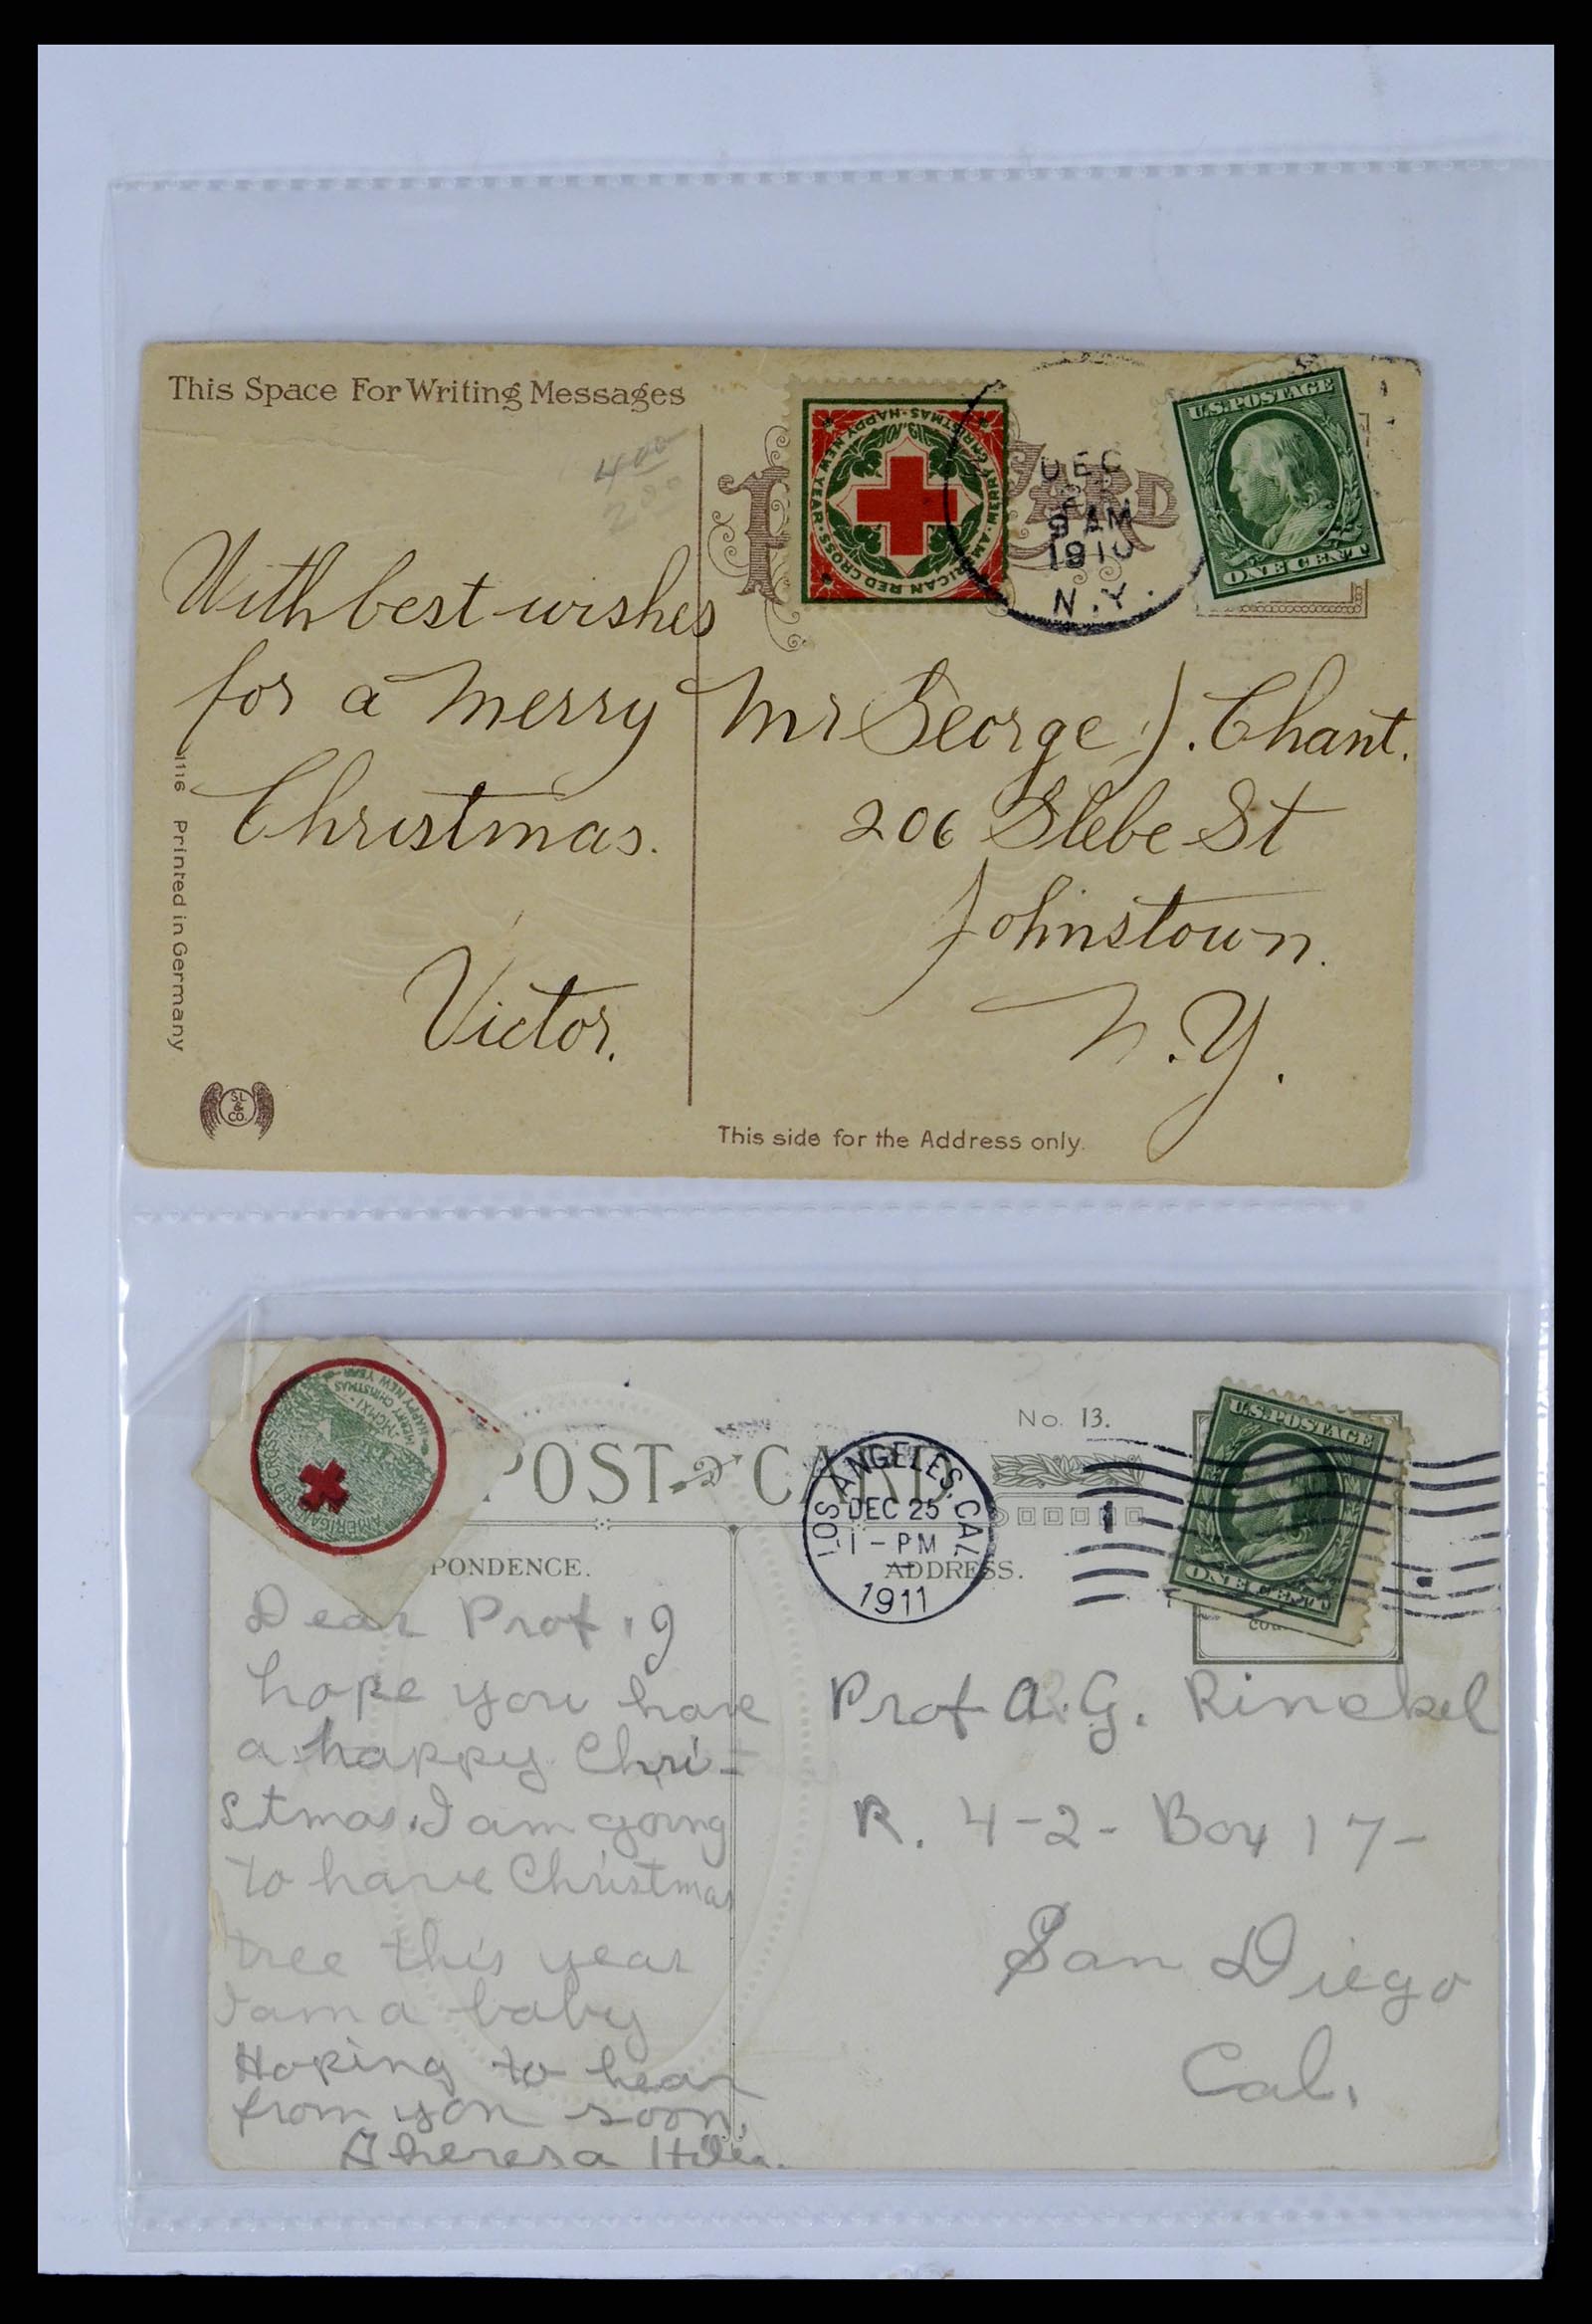 This Space For Writing Messages
4 00
2 00
With best wishes
for a Merry
Christmas.
Victor.
1116 Printed in Germany
S.L & CO.
HAPPY NEW YEAR · AMERICAN RED CROSS · MERRY CHRISTMAS
1910
CARD
DEC
9 AM
1910
N.Y.
U.S. POSTAGE
ONE CENT
Mr George J. Chant.
206 Glebe St
Johnstown.
N.Y.
This side for the Address only.
HAPPY NEW YEAR
MERRY CHRISTMAS
MCMXI
AMERICAN RED CROSS
No. 13.
POST CARD
LOS ANGELES, CAL
DEC 25
1 - PM
1911
1
U.S. POSTAGE
ONE CENT
PONDENCE.
ADDRESS.
Dear Prof. I
hope you have
a happy Chri-
stmas. I am going
to have Christmas
tree this year
I am a baby
Hoping to hear
from you soon.
Theresa
Prof A. G. Rinckel
R. 4-2- Box 17-
San Diego
Cal.